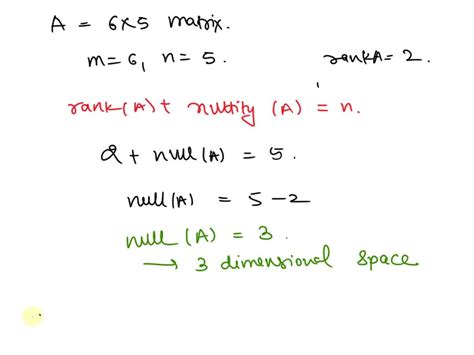 A = 6x5 matrix.
m=6, n=5. rankA=2.
rank(A)+ nullity (A) = n.
2 + null(A) = 5.
null(A) = 5-2
null (A) = 3.
→ 3 dimensional space